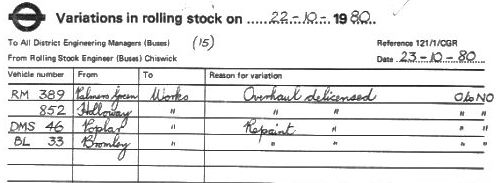 Variations in rolling stock on ..... 22-10-. 1980...
To All District Engineering Managers (Buses) (15) Reference 121/1/CGR
From Rolling Stock Engineer (Buses) Chiswick Date 23-10-80
Vehicle number From To Reason for variation
RM 389 Palmers Green Works Overhaul delicensed O/o NO
852 Holloway " " " " "
DMS 46 Poplar " Repaint " " "
BL 33 Bromley " " " " "